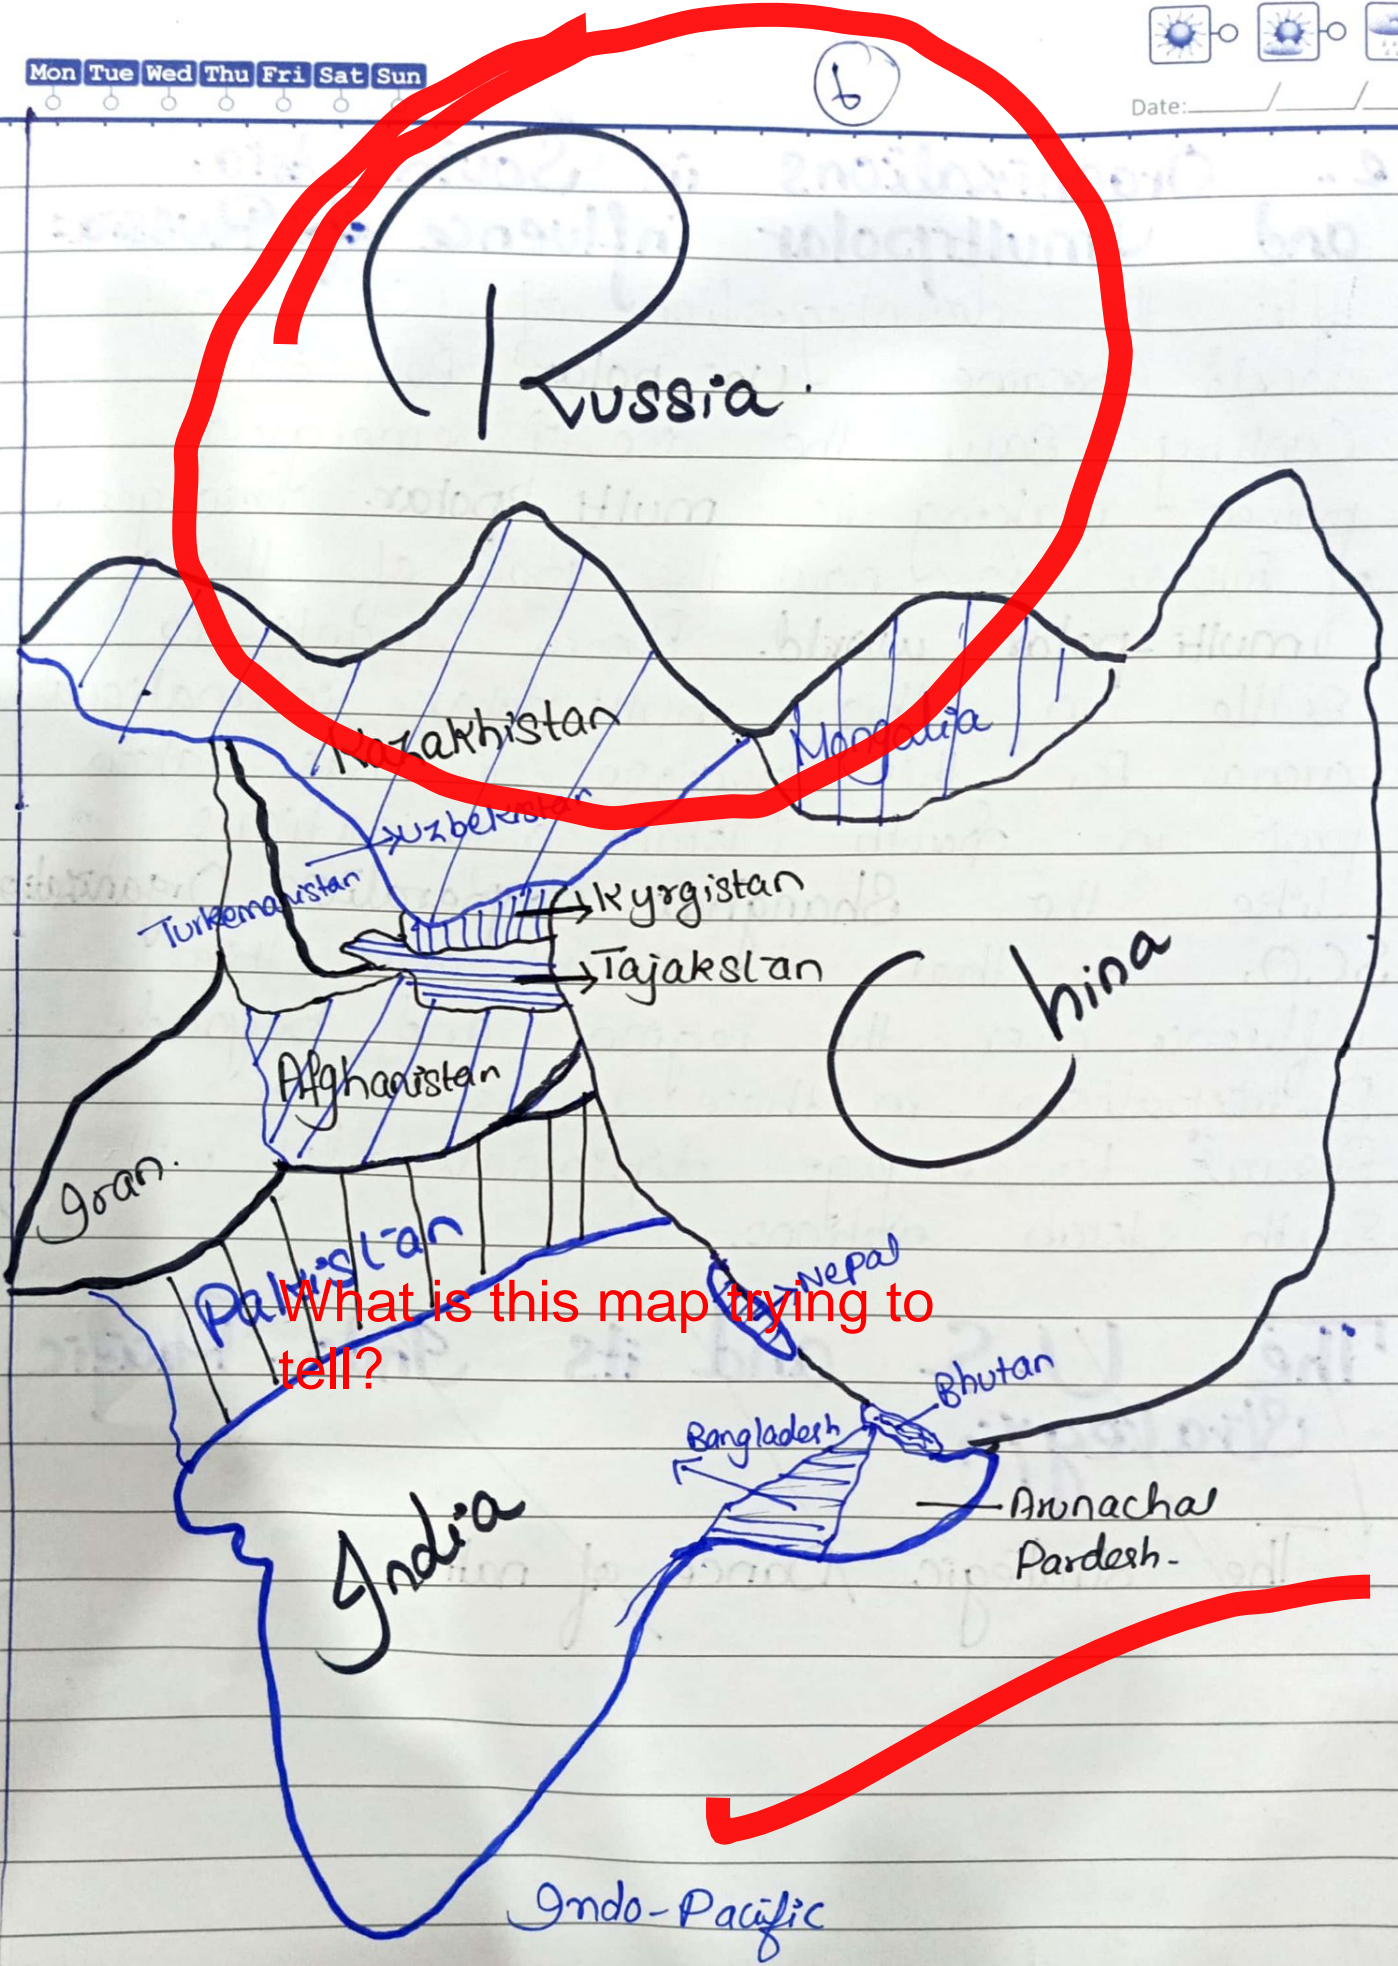 Mon Tue Wed Thu Fri Sat Sun
6
Date:
Russia.
Kazakhistan
Mongalia
Uzbekistan
Turkemanistan
Kyrgistan
Tajakstan
China
Afghanistan
Iran.
Pakistan
Nepal
What is this map trying to
tell?
Bhutan
Bangladesh
India
Arunachal
Pardesh-
Indo-Pacific